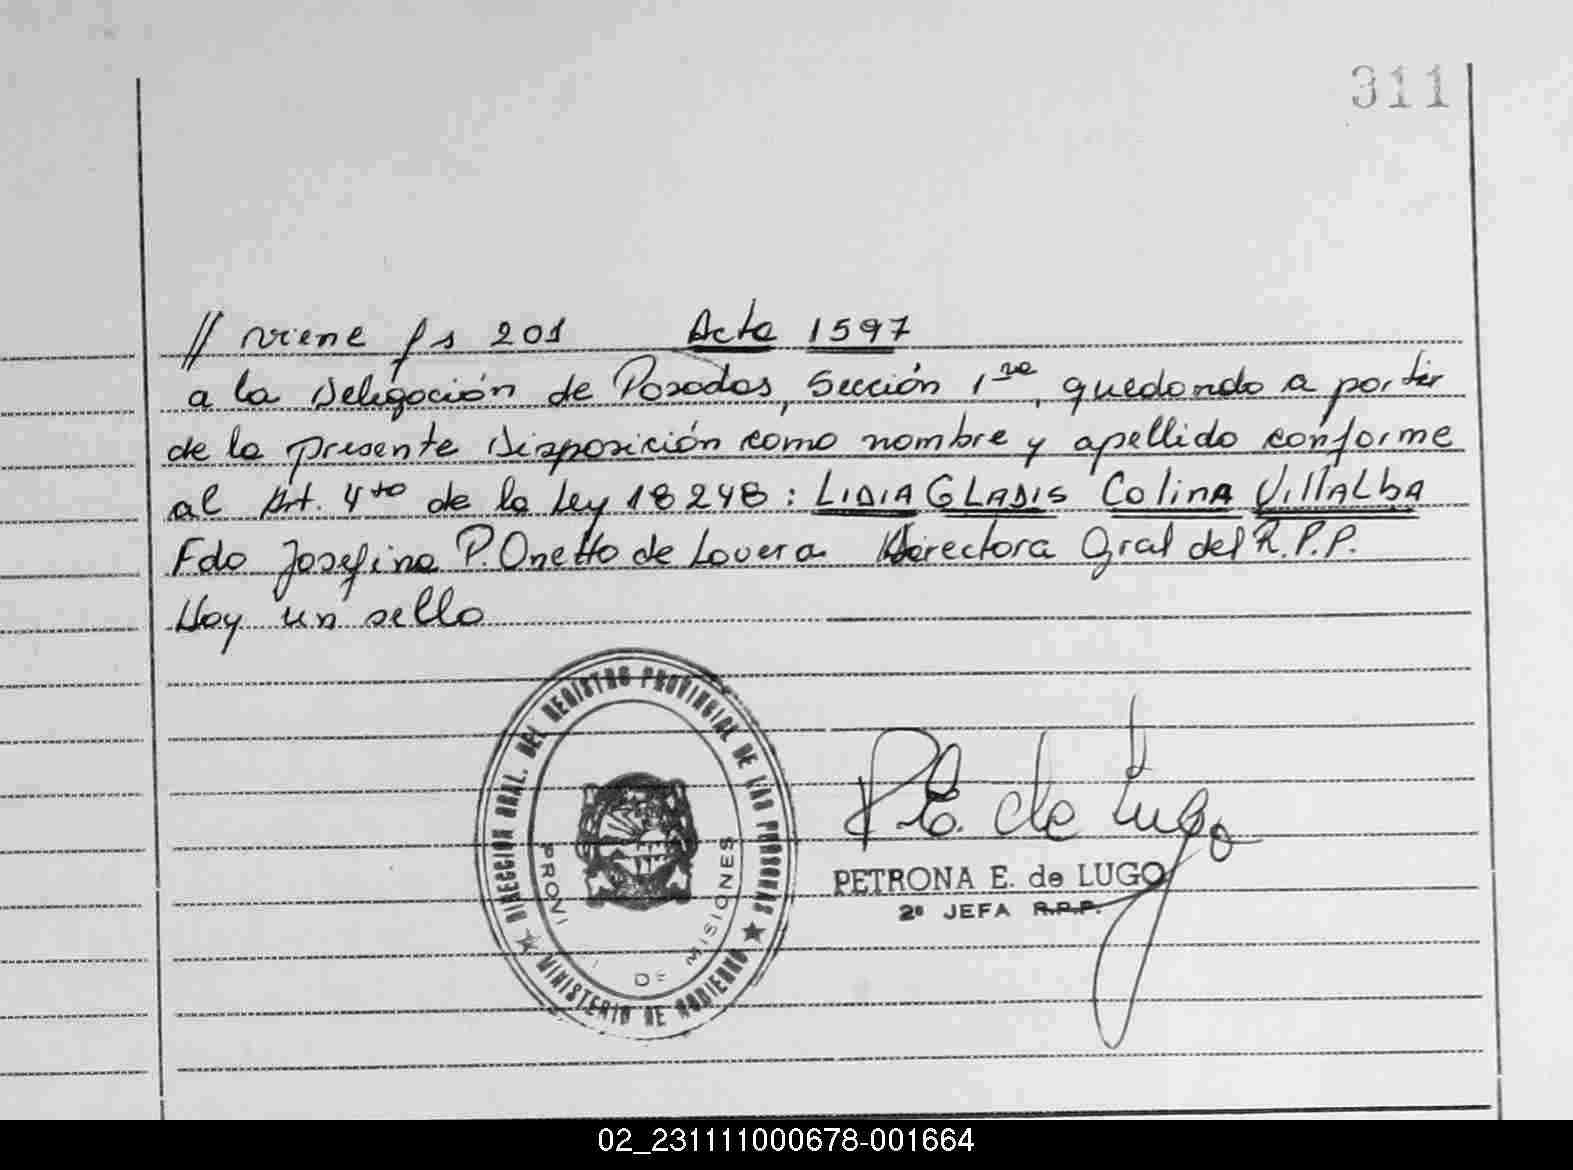 311
// viene fs 201 Acta 1597
a la Delegación de Posadas, Sección 1ra, quedando a partir
de la presente Disposición como nombre y apellido conforme
al Art. 4to de la Ley 18248: LIDIA GLADIS Colina VillALbA
Fdo Josefina P. Onetto de Lovera Directora Gral del R.P.P.
Hay un sello
DIRECCION GRAL. DEL REGISTRO PROVINCIAL DE LAS PERSONAS
PROVI DE MISIONES
MINISTERIO DE GOBIERNO
P. E. de Lugo
PETRONA E. de LUGO
2º JEFA R.P.P.
02_231111000678-001664